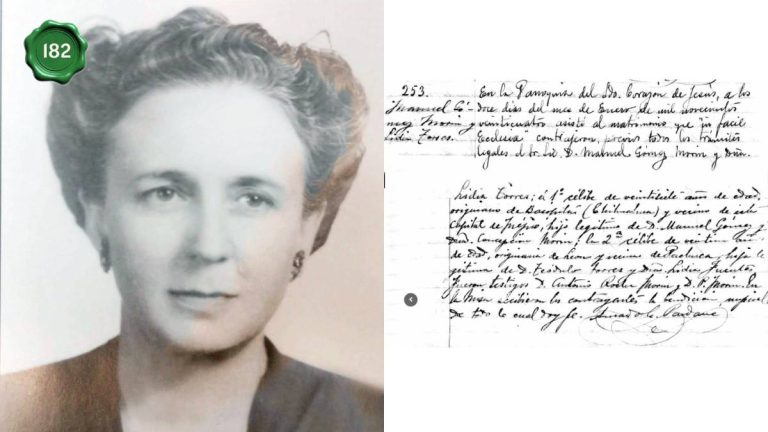 182
253.
Manuel Gó-
mez Morin y
Lidia Torres.
En la Parroquia del Sdo. Corazón de Jesús, a los
doce días del mes de Enero de mil novecientos
veinticuatro asistí al matrimonio que in facie
Ecclesia contrajeron, previos todos los trámites
legales el Sr. Lic. D. Manuel Gómez Morin y Dña.
Lidia Torres; el 1º célibe de veintisiete años de edad,
originario de Batopilas (Chihuahua) y vecino de esta
Capital de México, hijo legítimo de D. Manuel Gómez y
Dña. Concepción Morin; la 2ª célibe de
de edad, originaria de León y vecina de Pachuca, hija le
gítima de D. Teódulo Torres y Dña. Lidia Fuentes.
Fueron testigos D. Antonio Morin y D. P. Morin. En
la Misa recibieron los contrayentes la bendición nupcial
de todo lo cual doy fe.